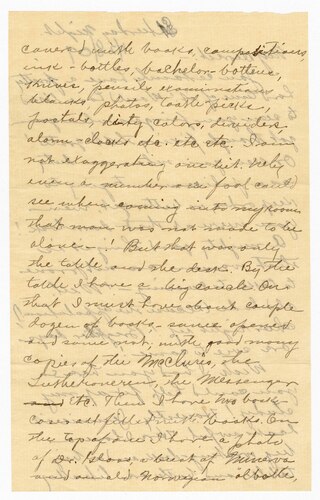 covered with books, compositions,
ink-bottles, bachelor-buttons,
knives, pencils, examination
blanks, photos, tooth-picks,
postals, dirty colors, dividers
alarm clocks etc. etc etc. I am
not exaggerating one bit. Why
even a number one fool could
see when coming into my room
that man was not made to be
alone! But that was only
the table and the desk. By the
table I have a big couch. On
that I must have about couple
dozen of books - some opened
and some not, with good many
copies of the McClure's, the
Lutheraneren, the Messenger
and etc. Then I have two book-
cases all filled with books. On
the top of one I have a photo
of Dr. a bust of Minerva
and an old Norwegian bottle,